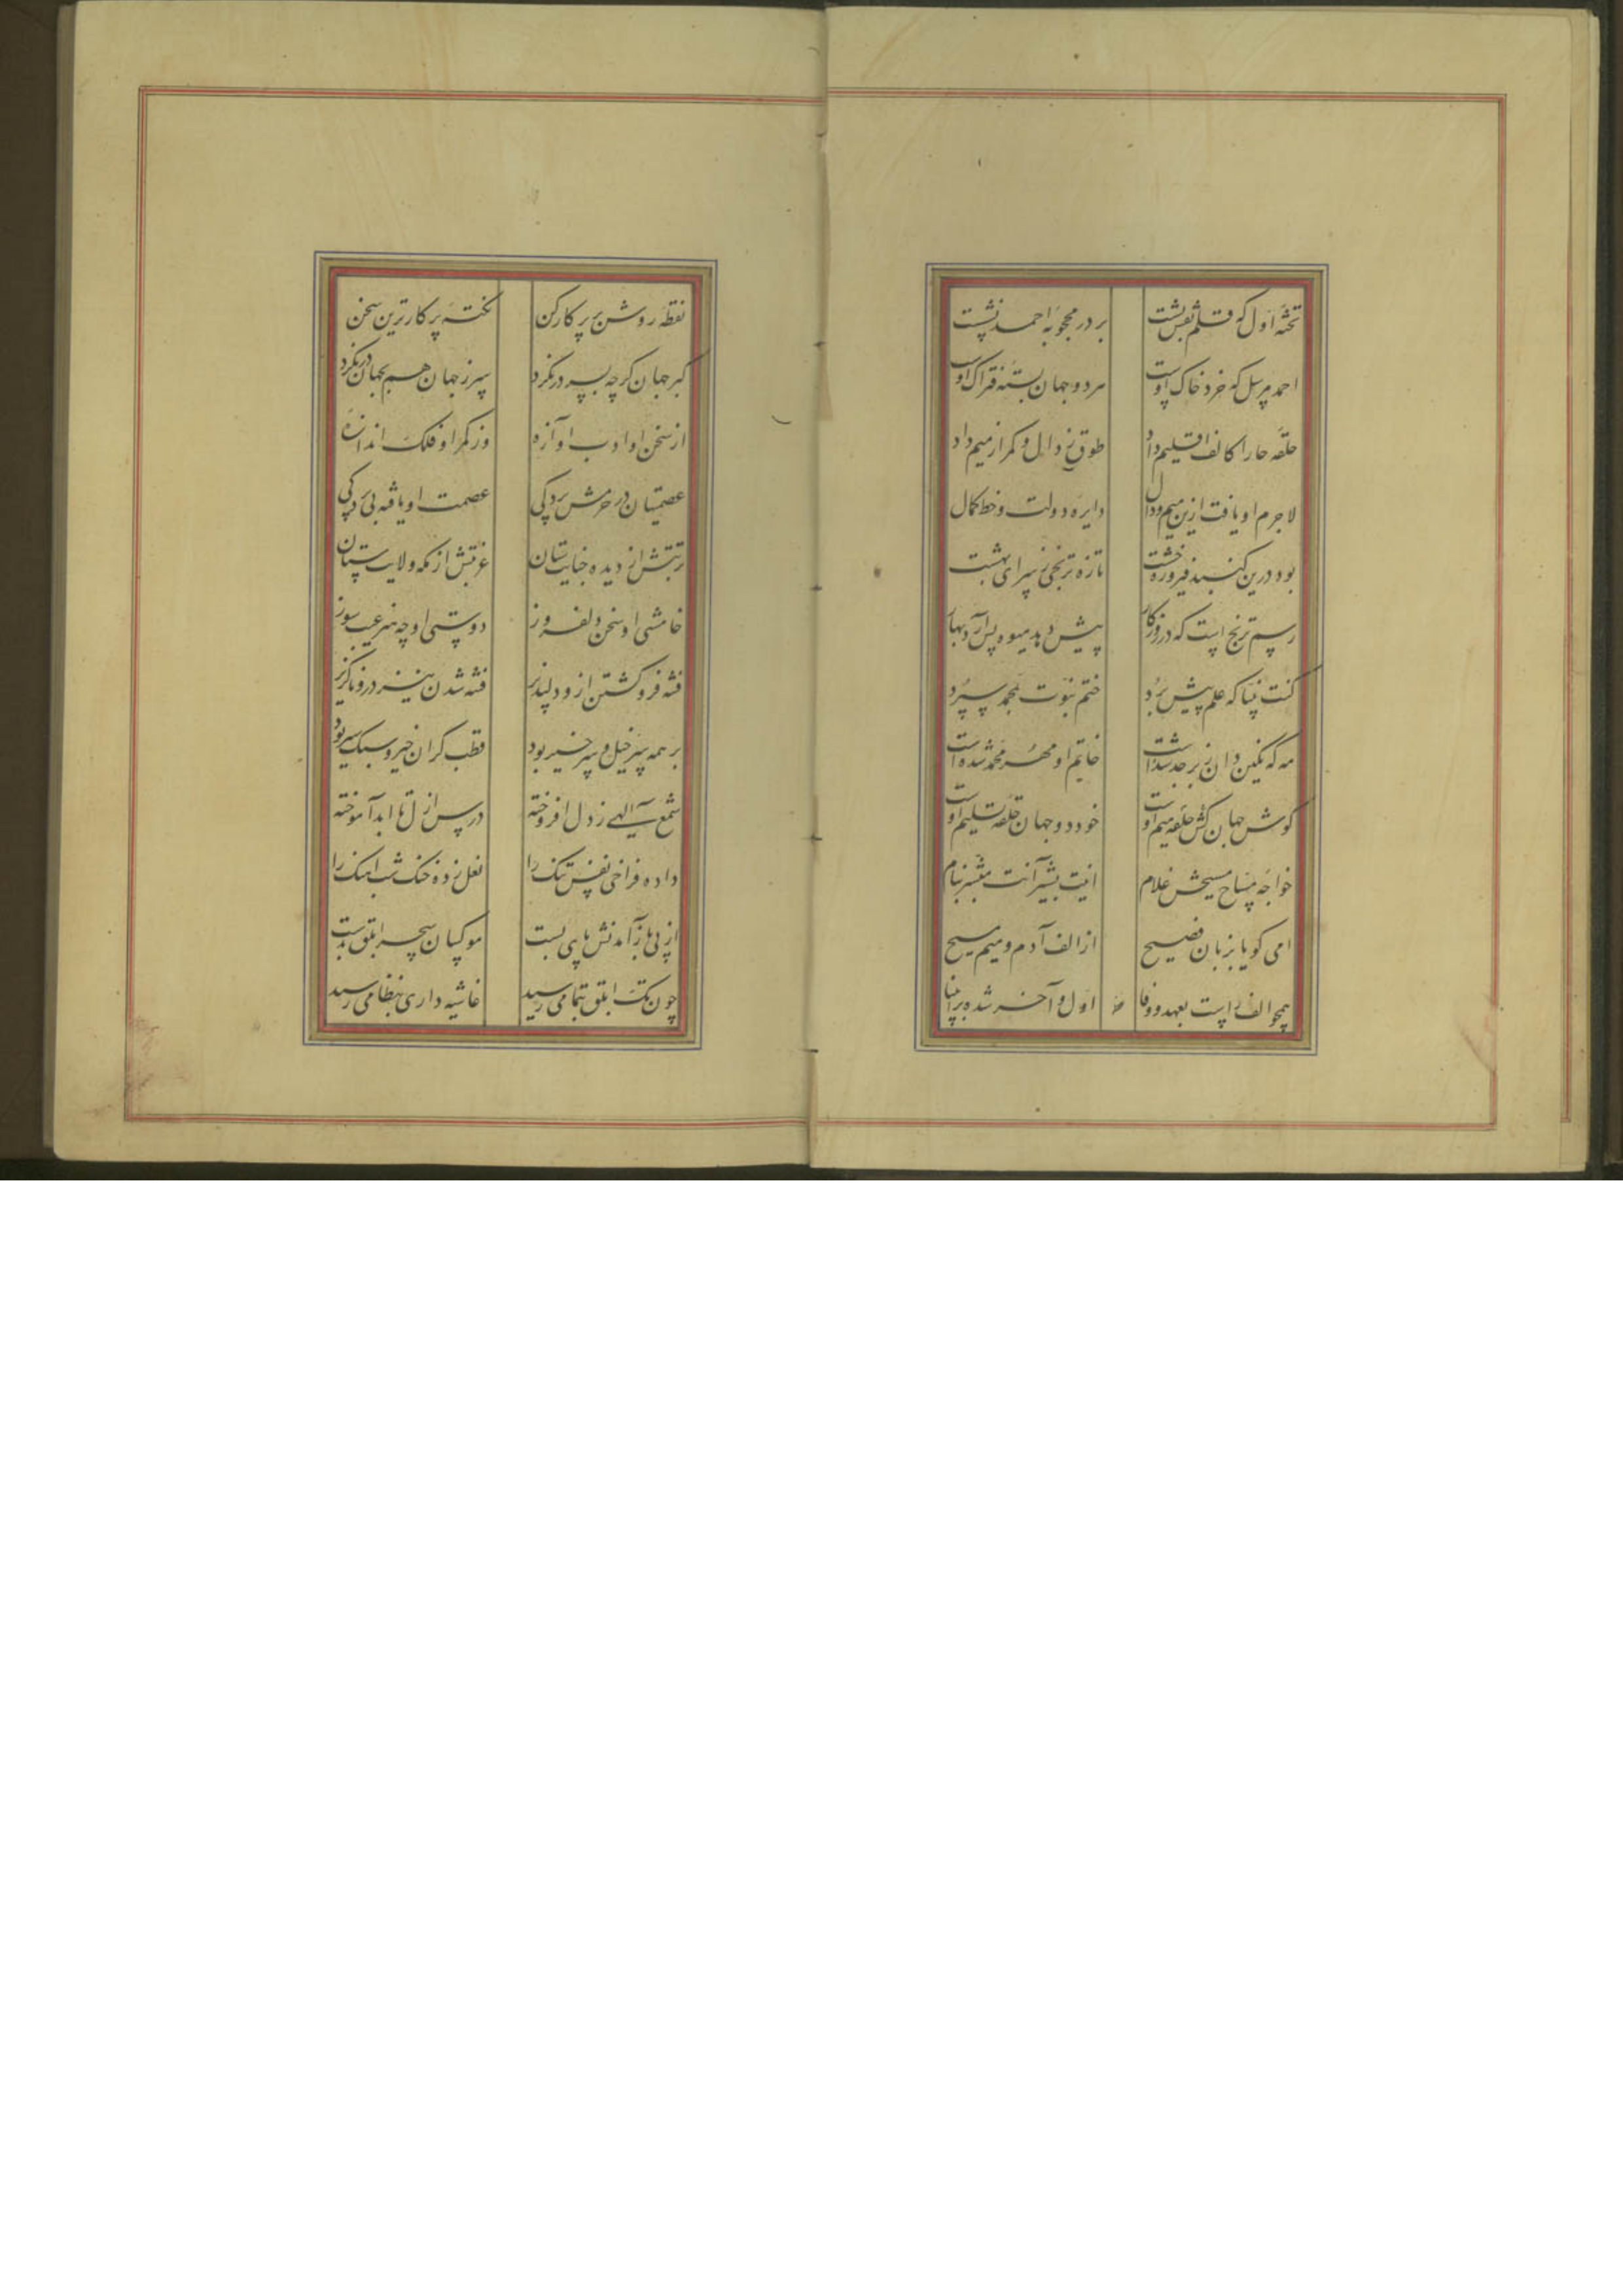 تخته اول که قلم نقش بست بر در محجوبه احمد نشست
احمد مرسل که خرد خاک اوست هر دو جهان بسته فتراک اوست
حلقه حا را کالف اقلیم داد طوق ز دال و کمر از میم داد
لاجرم او یافت ازین میم و دال دایره دولت و خط کمال
بود درین گنبد فیروزه خشت تازه ترنجی ز سرای بهشت
رسم ترنج است که در روزگار پیش دهد میوه پس آرد بهار
کنت نبیا که علم پیش برد ختم نبوت بمحمد سپرد
مه که نگین دان زبرجد شدست خاتم او مهر محمد شده است
گوش جهان حلقه کش میم اوست خود دو جهان حلقه تسلیم اوست
خواجه مساح مسیحش غلام انیت بشیر آنت مبشر بنام
امی گویا بزبان فصیح از الف آدم و میم مسیح
همچو الف راست بعهد و وفا اول و آخر شده بر انبیا
نقطه روشن‌تر پرکار کن نکته پرکارترین سخن
کبر جهان گرچه بسر در نکرد سر ز جهان هم بجهان در نکرد
از سخن او ادب آوازه وز کمر او فلک اندازه
عصمتیان در حرمش پردگی عصمت او یافته پروردگی
تربتش از دیده جنایت ستان غربتش از مکه ولایت ستان
خامشی او سخن دلفروز دوستی او چه هنر عیب سوز
فتنه فرو کشتن ازو دلپذیر فتنه شدن نیز درو ناگزیر
بر همه سر خیل و سر خیر بود قطب گران خیز و سبک سیر بود
شمع الهی ز دل افروخته درس ازل تا ابد آموخته
داده فراخی نفس تنگ را نعل زده خنگ شب آهنگ را
از پی باز آمدنش پای بست موکبیان سحر ابلق بدست
چون تک ابلق بتمامی رسید غاشیه داری بنظامی رسید